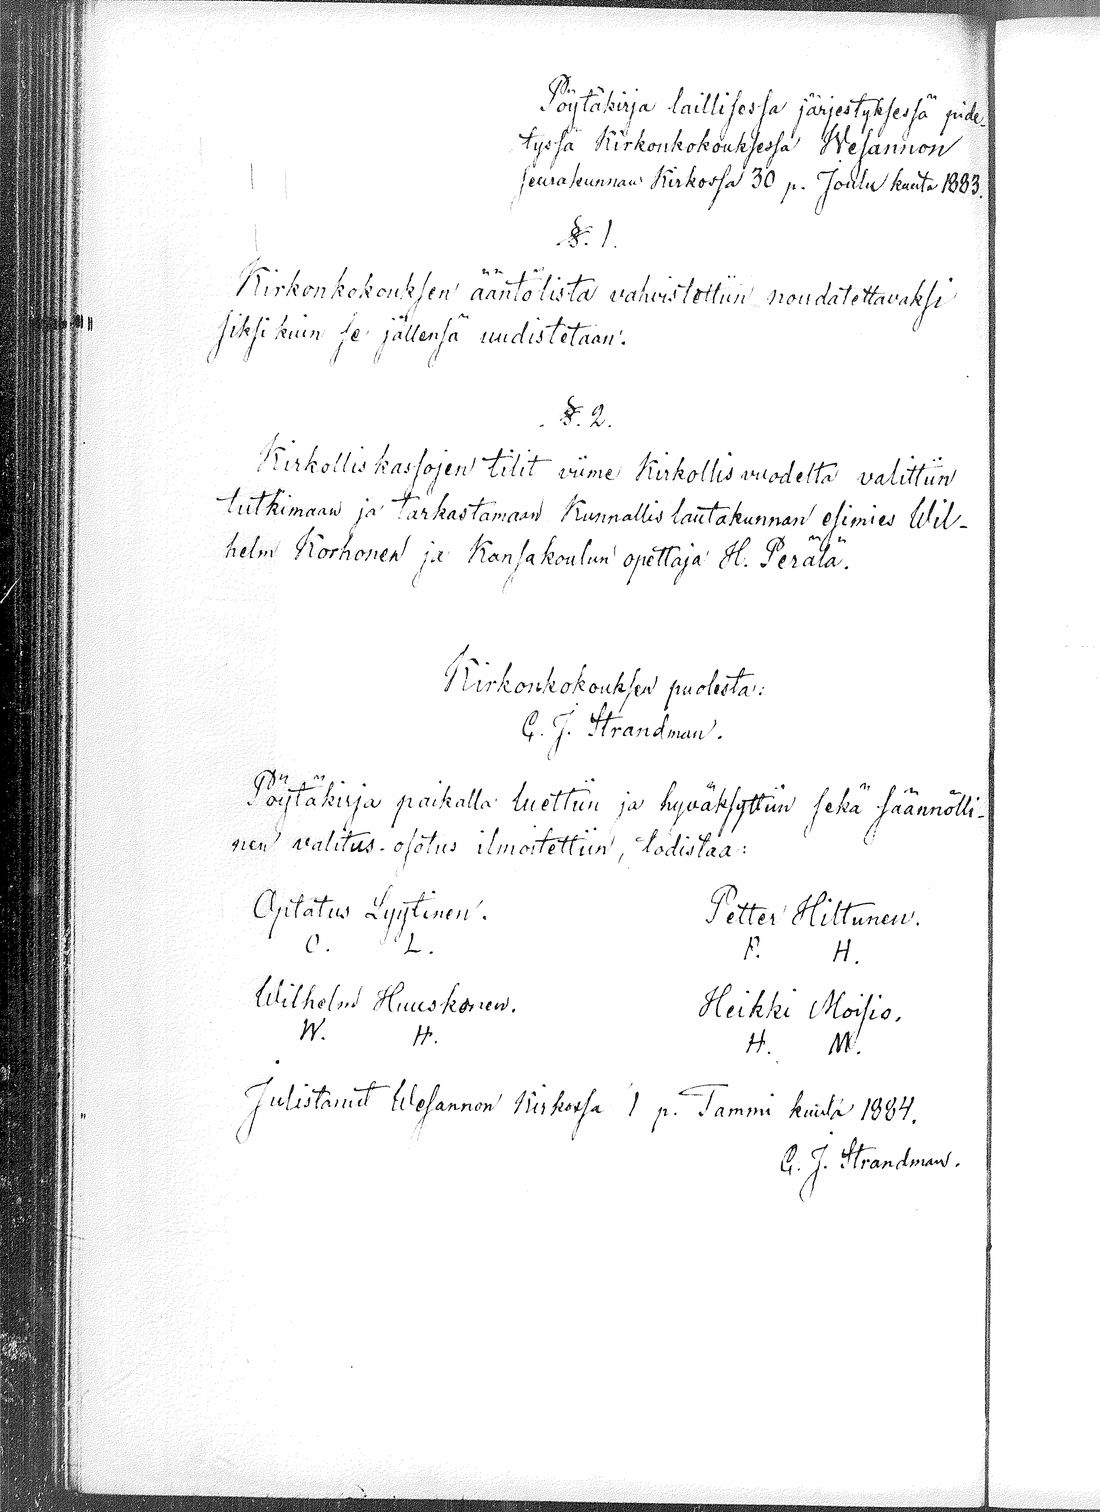 Pöytäkirja laillisessa järjestyksessä pide-
tyssä Kirkonkokouksessa Wesannon
seurakunnan Kirkossa 30 p. Joulu kuuta 1883.
§. 1.
Kirkonkokouksen ääntölista vahvistettiin noudatettavaksi
siksi kuin se jällensä uudistetaan.
§. 2.
Kirkollis kassojen tilit viime Kirkollis vuodelta valittiin
tutkimaan ja tarkastamaan Kunnallis lautakunnan esimies Wil-
helm Korhonen ja Kansakoulun opettaja H. Perälä.
Kirkonkokouksen puolesta:
G. J. Strandman.
Pöytäkirja paikalla luettiin ja hyväksyttiin sekä säännölli-
nen valitus-osotus ilmoitettiin, todistaa:
Optatus Lyytinen. Petter Hiltunen.
O. L. P. H.
Wilhelm Huuskonen. Heikki Moisio.
W. H. H. M.
Julistanut Wesannon Kirkossa 1 p. Tammi kuuta 1884.
G. J. Strandman.